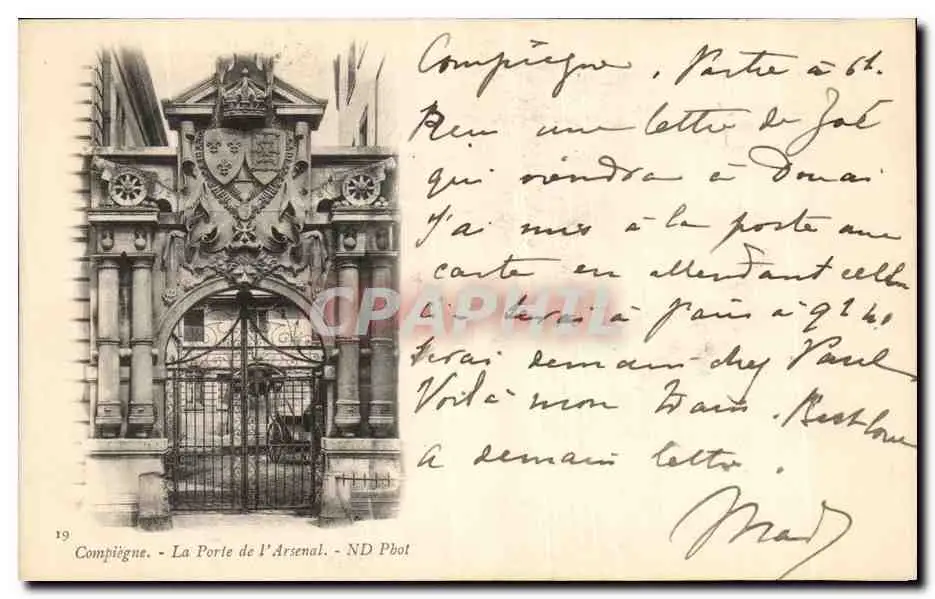 Compiègne. Partie à 6h.
Reçu une lettre de Joé
qui viendra à Douai
J'ai mis à la poste une
carte en attendant celle
ci - serai à Paris à 9h 40
serai demain chez Paul
Voilà mon train. Best love
à demain lettre.
Mad
CPAPHIL
19
Compiègne. - La Porte de l'Arsenal. - ND Phot